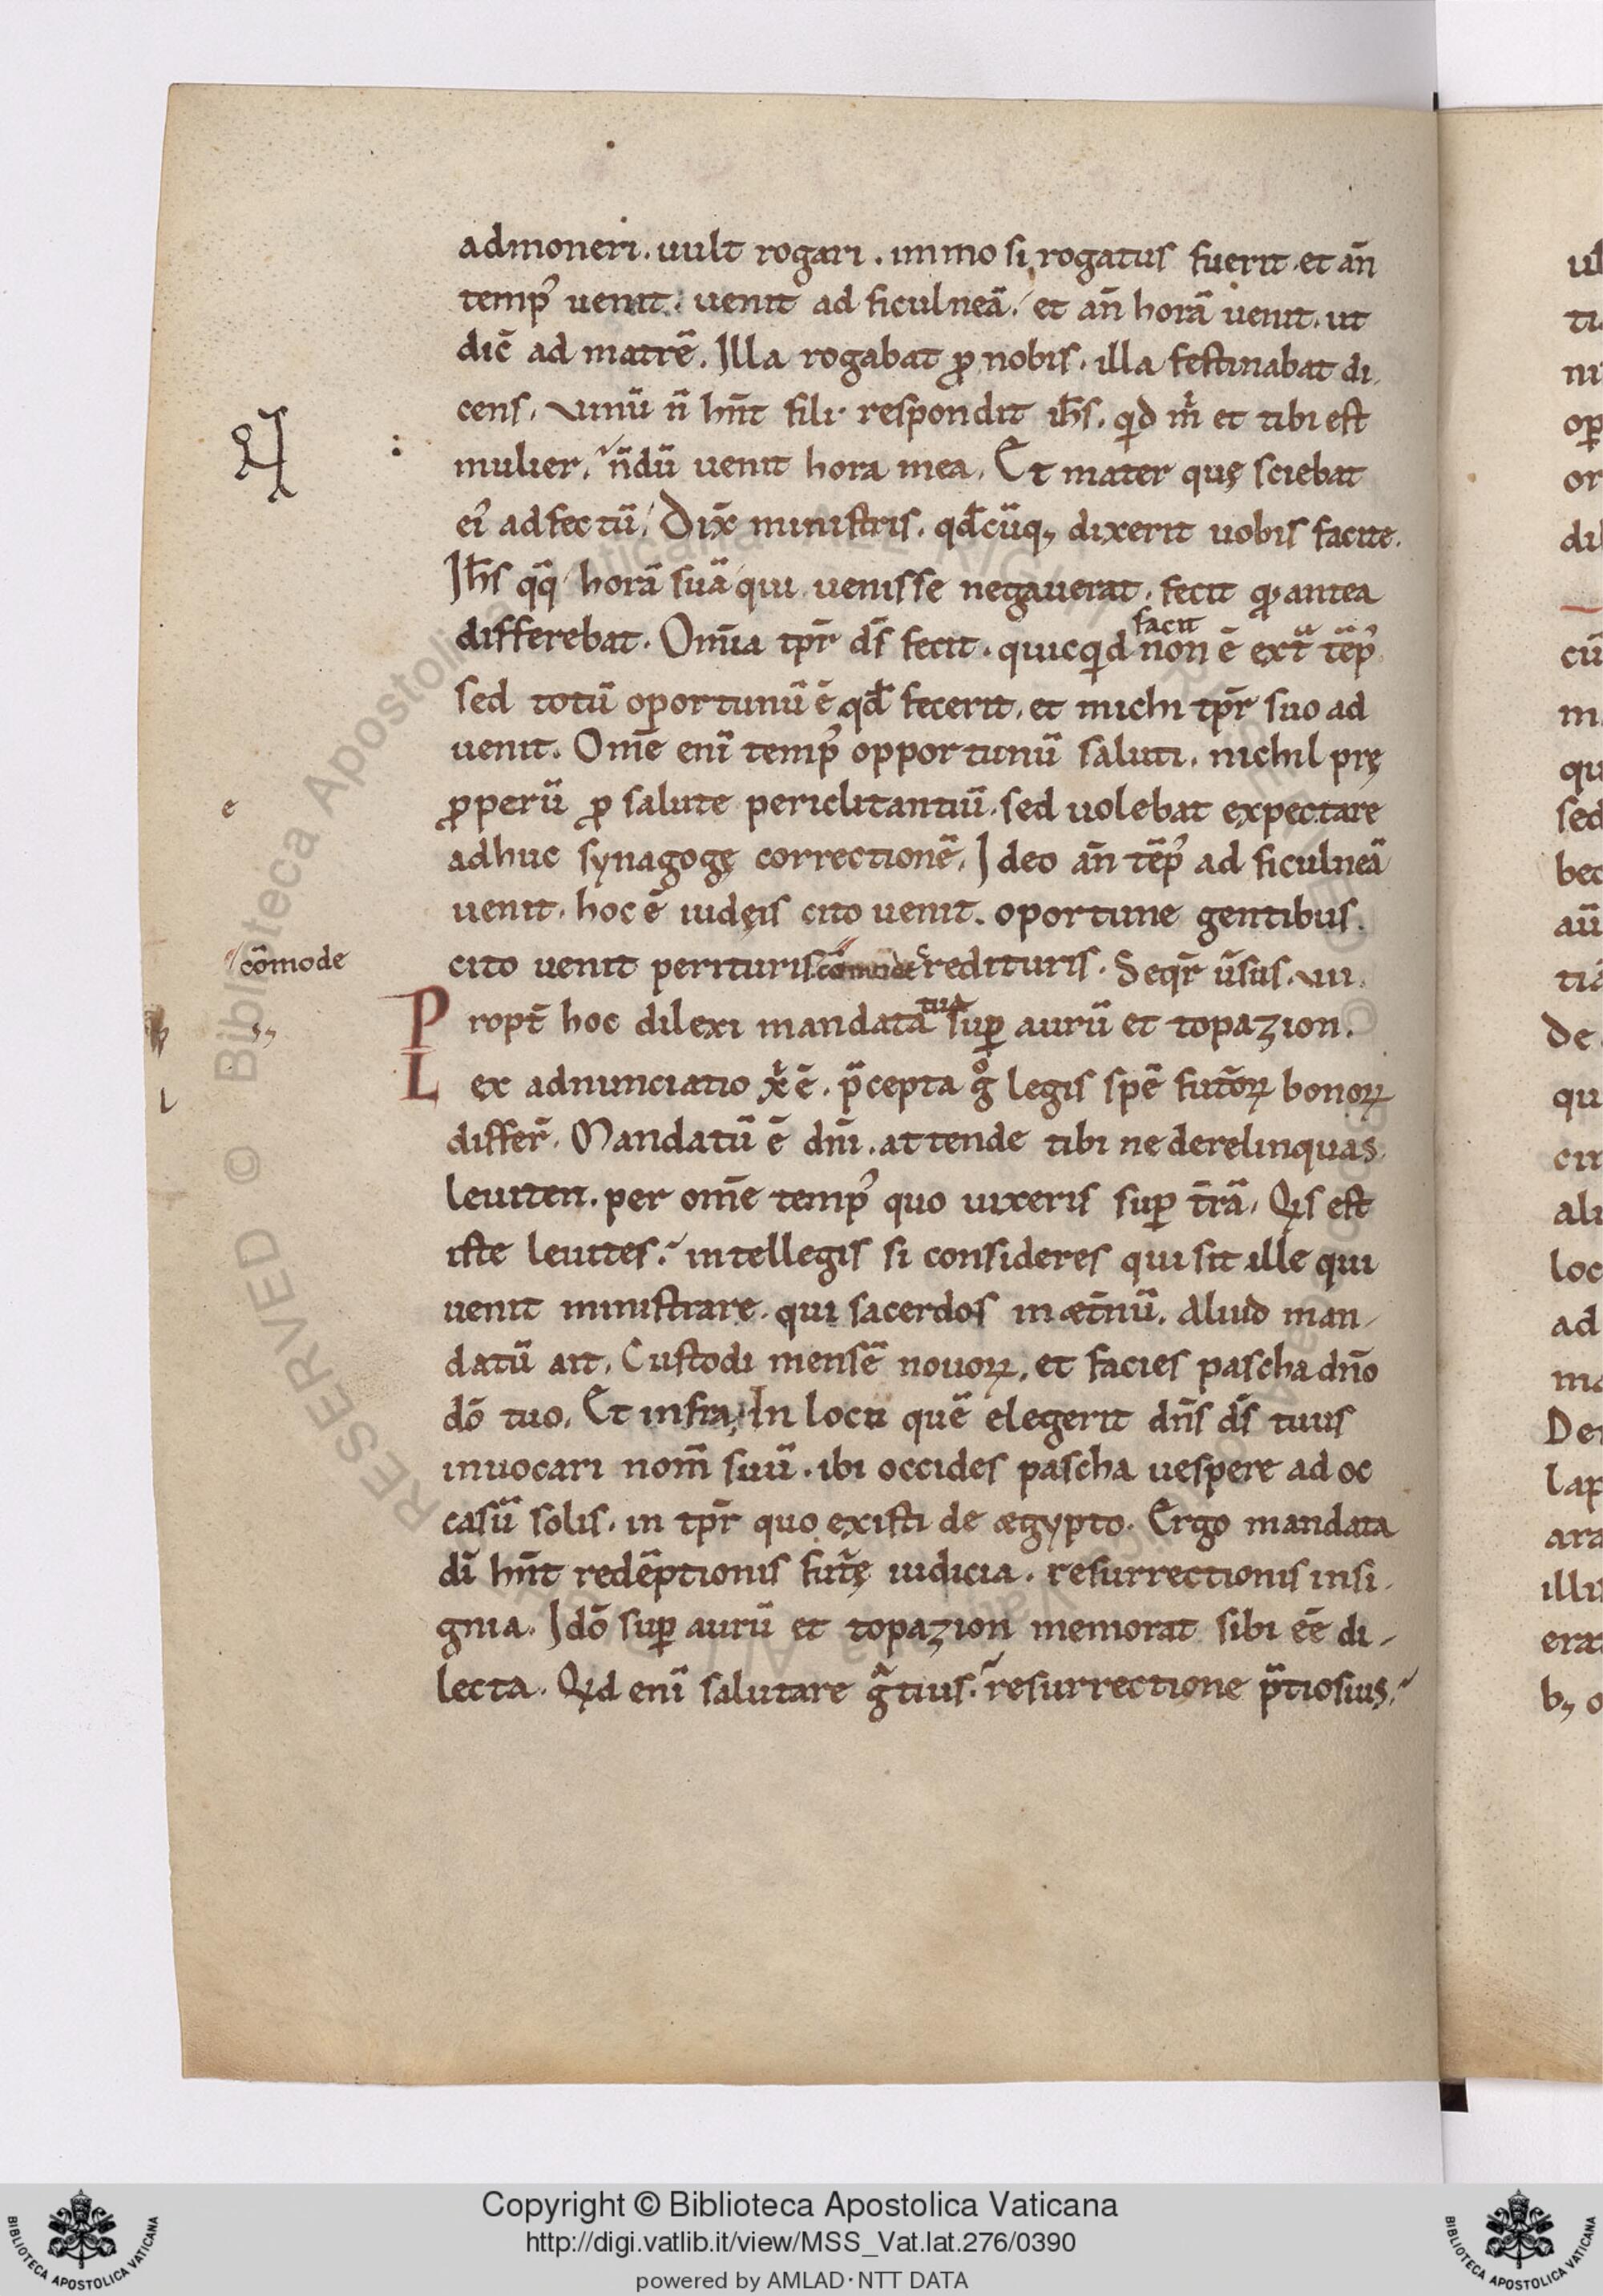 admoneri. uult rogari. immo si rogatus fuerit. et añ
temp᾽ uenit. uenit ad ficulneā. et añ horā uenit. ut
dic̄ ad matrē. Illa rogabat ꝓ nobis. illa festinabat di
cens. uinū n̄ hn̄t fili. respondit ih̄s. qd m̍ et tibi est
mulier. n̄dū uenit hora mea. Et mater quę sciebat
ei᾽ adfectū. Dix̄ ministris. qd̄cūq; dixerit uobis facite.
Ih̄s qͣqͣ horā suā qui uenisse negauerat. fecit qͩ antea
differebat. Om̄ia tp̄r ds̄ fecit. quicqd facit non ē extͣ tēp᾽
sed totū oportunū ē qd̄ fecerit. et michi tp̄r suo ad
uenit. Om̄e enī temp᾽ opportunū saluti. nichil prę
e
ꝓperū ꝓ salute periclitantiū. sed uolebat expectare
adhuc synagogę correctionē. Ideo añ tēp᾽ ad ficulneā
uenit. hoc ē iudęis cito uenit. oportune gentibus.
cōmode
cito uenit perituris cōmode redituris. Seqr̄ ūsus. uii.
Propt̄ hoc dilexi mandata tua suꝑ aurū et topazion.
Lex adnunciatio xp̍ ē. p̄cepta gͦ legis spē futōꝝ bonoꝝ
differ̄. Mandatū ē dn̄i. attende tibi ne derelinquas
leuiten. per om̄e temp᾽ quo uixeris suꝑ t̄rā. Qis est
iste leuites. intellegis si consideres qui sit ille qui
uenit ministrare. qui sacerdos in æt̄nū. Aliud man
datū ait. Custodi mensē nouoꝝ. et facies pascha dn̄o
dō tuo. Et infra. In locū quē elegerit dn̄s ds̄ tuus
inuocari nom̄ suū. ibi occides pascha uespere ad oc
casū solis. in tp̄r quo existi de ægypto. Ergo mandata
dī hn̄t redēptionis futͣę iudicia. resurrectionis insi
gnia. Idō suꝑ aurū et topazion memorat sibi eē di
lecta. Qd enī salutare gͣtius. resurrectione p̄tiosius.
Copyright © Biblioteca Apostolica Vaticana
http://digi.vatlib.it/view/MSS_Vat.lat.276/0390
powered by AMLAD·NTT DATA